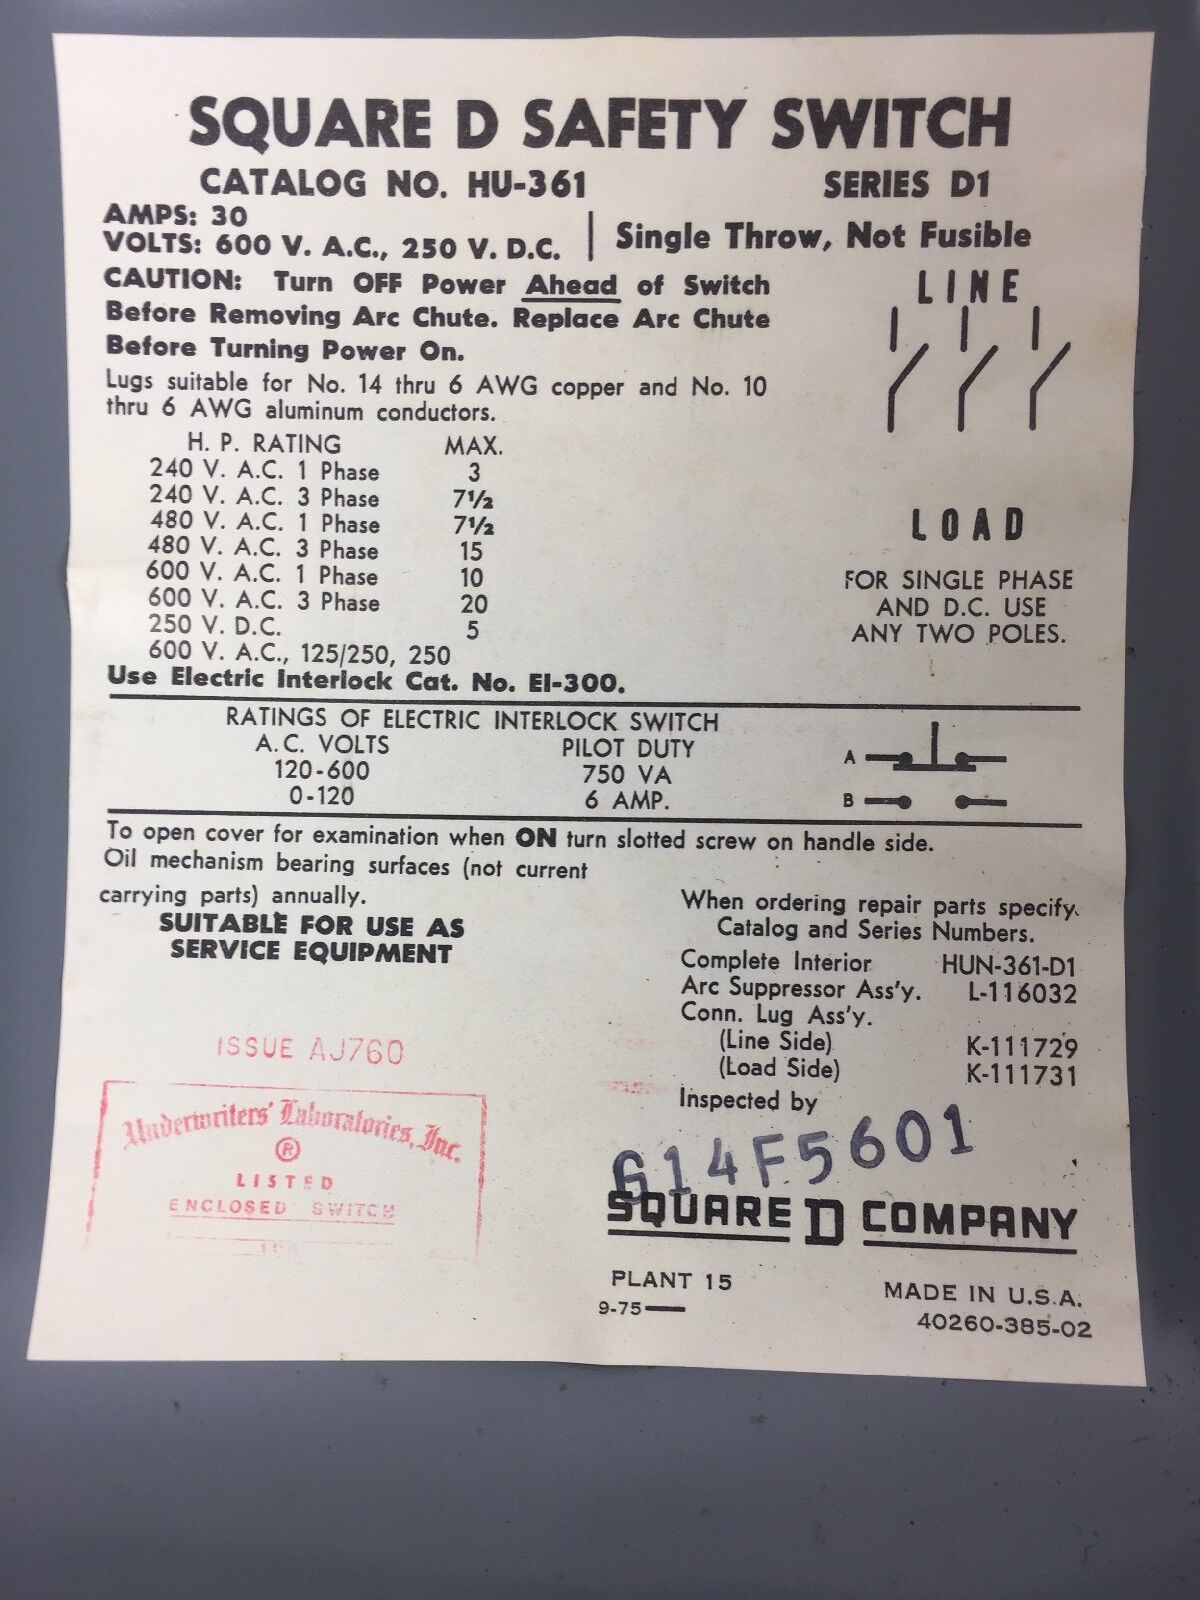 SQUARE D SAFETY SWITCH
CATALOG NO. HU-361 SERIES D1
AMPS: 30
VOLTS: 600 V. A.C., 250 V. D.C.
Single Throw, Not Fusible
CAUTION: Turn OFF Power Ahead of Switch
Before Removing Arc Chute. Replace Arc Chute
Before Turning Power On.
LINE
Lugs suitable for No. 14 thru 6 AWG copper and No. 10
thru 6 AWG aluminum conductors.
H. P. RATING MAX.
240 V. A.C. 1 Phase 3
240 V. A.C. 3 Phase 7½
480 V. A.C. 1 Phase 7½
480 V. A.C. 3 Phase 15
600 V. A.C. 1 Phase 10
600 V. A.C. 3 Phase 20
250 V. D.C. 5
600 V. A.C., 125/250, 250
Use Electric Interlock Cat. No. EI-300.
LOAD
FOR SINGLE PHASE
AND D.C. USE
ANY TWO POLES.
RATINGS OF ELECTRIC INTERLOCK SWITCH
A.C. VOLTS PILOT DUTY
120-600 750 VA
0-120 6 AMP.
A
B
To open cover for examination when ON turn slotted screw on handle side.
Oil mechanism bearing surfaces (not current
carrying parts) annually.
SUITABLE FOR USE AS
SERVICE EQUIPMENT
When ordering repair parts specify
Catalog and Series Numbers.
Complete Interior HUN-361-D1
Arc Suppressor Ass'y. L-116032
Conn. Lug Ass'y.
(Line Side) K-111729
(Load Side) K-111731
Inspected by
G14F5601
ISSUE AJ760
Underwriters' Laboratories, Inc.
®
LISTED
ENCLOSED SWITCH
SQUARE D COMPANY
PLANT 15
9-75
MADE IN U.S.A.
40260-385-02